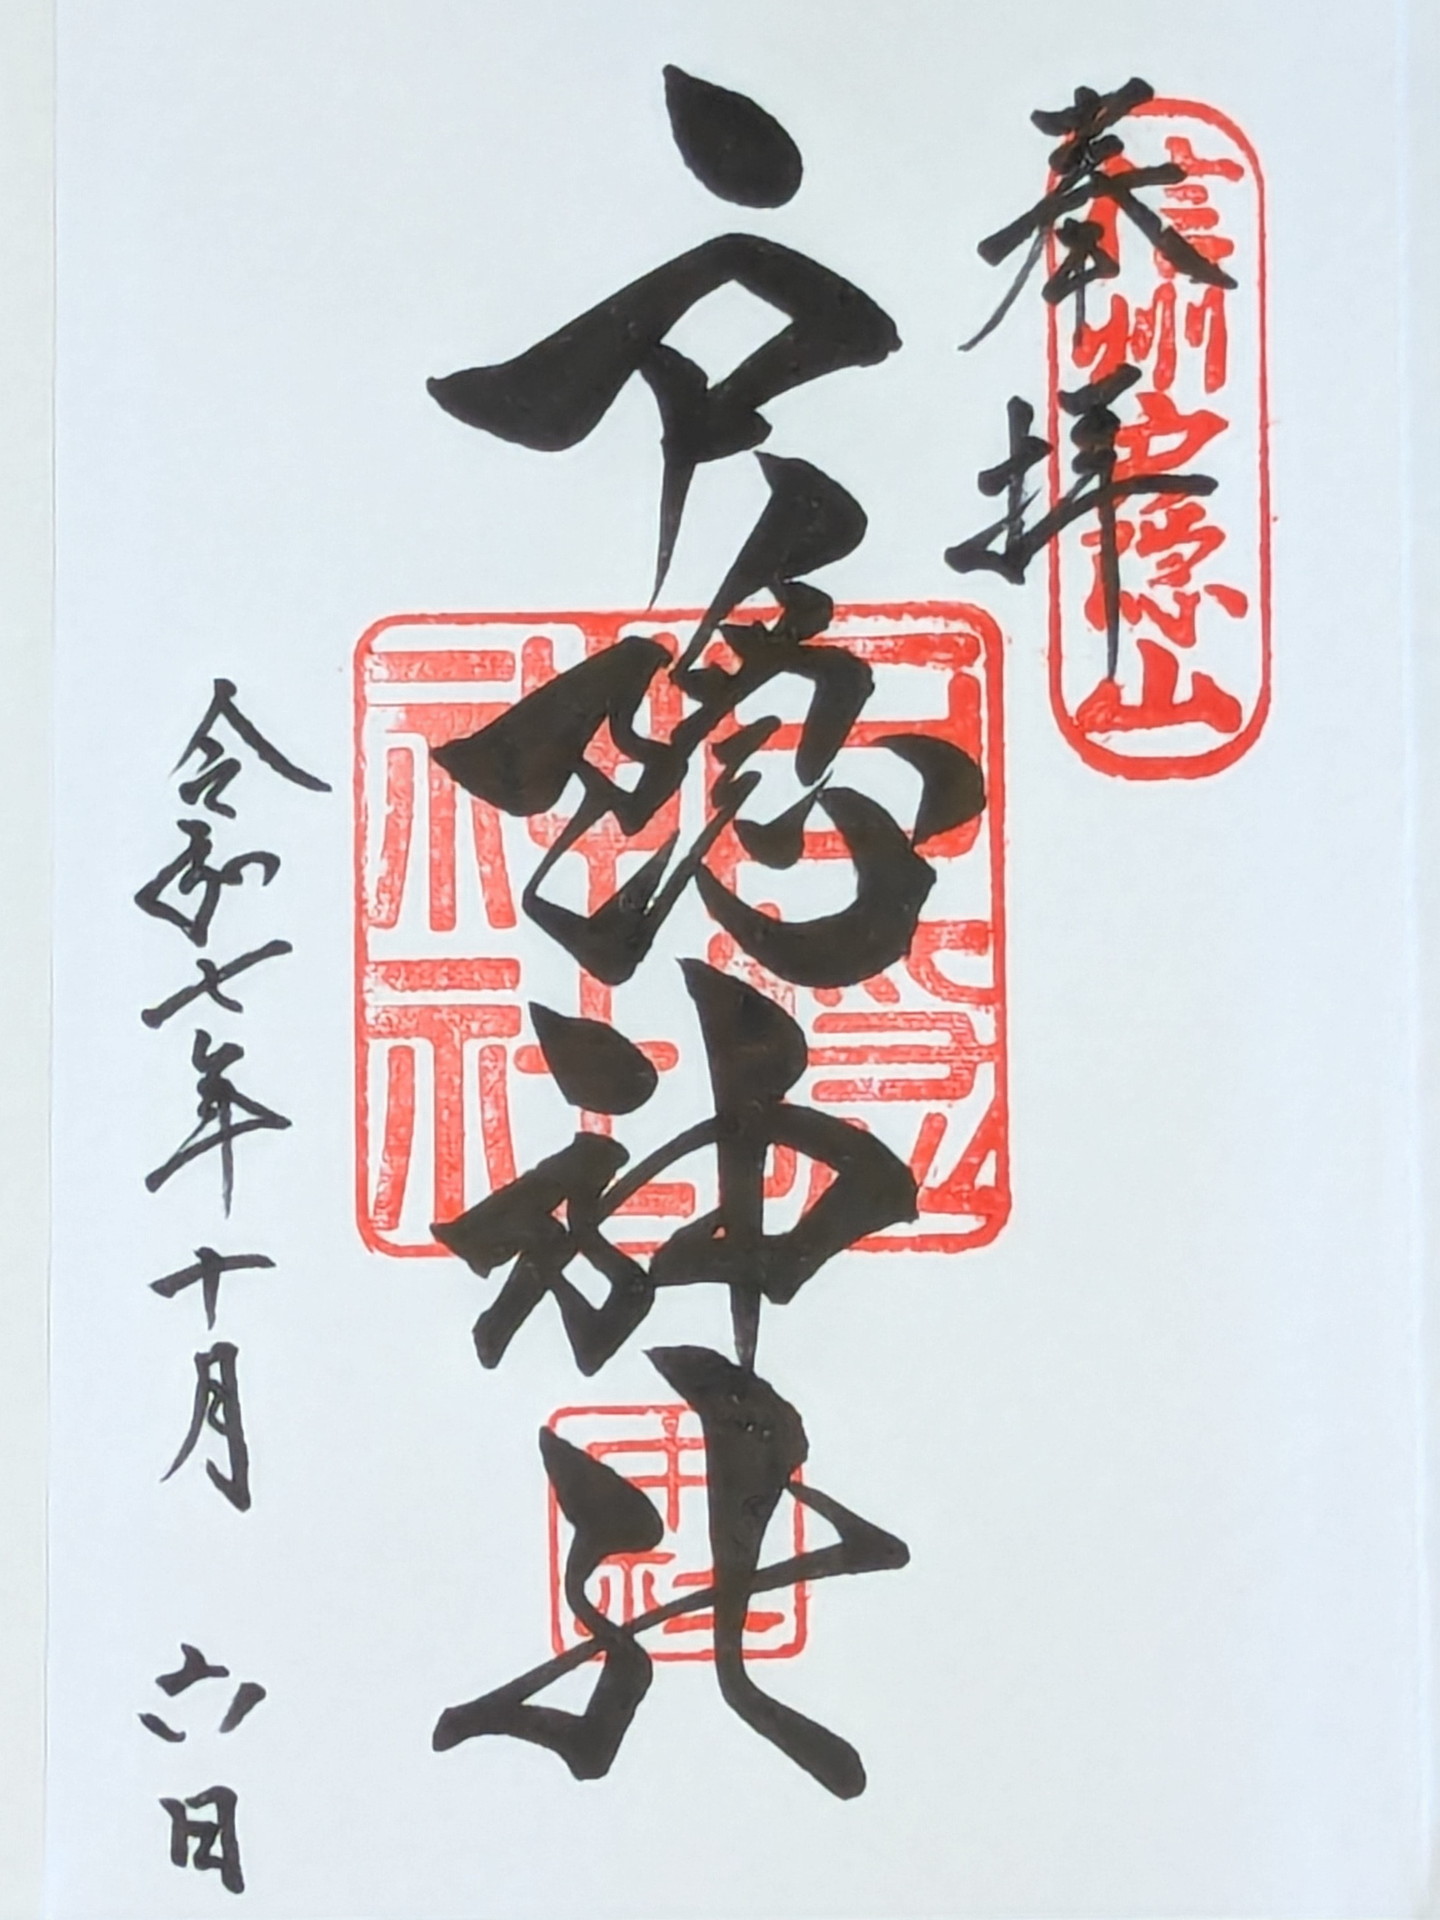 奉拝
信州戸隠山
戸隠神社
戸隠
神社
中社
令和七年十月六日